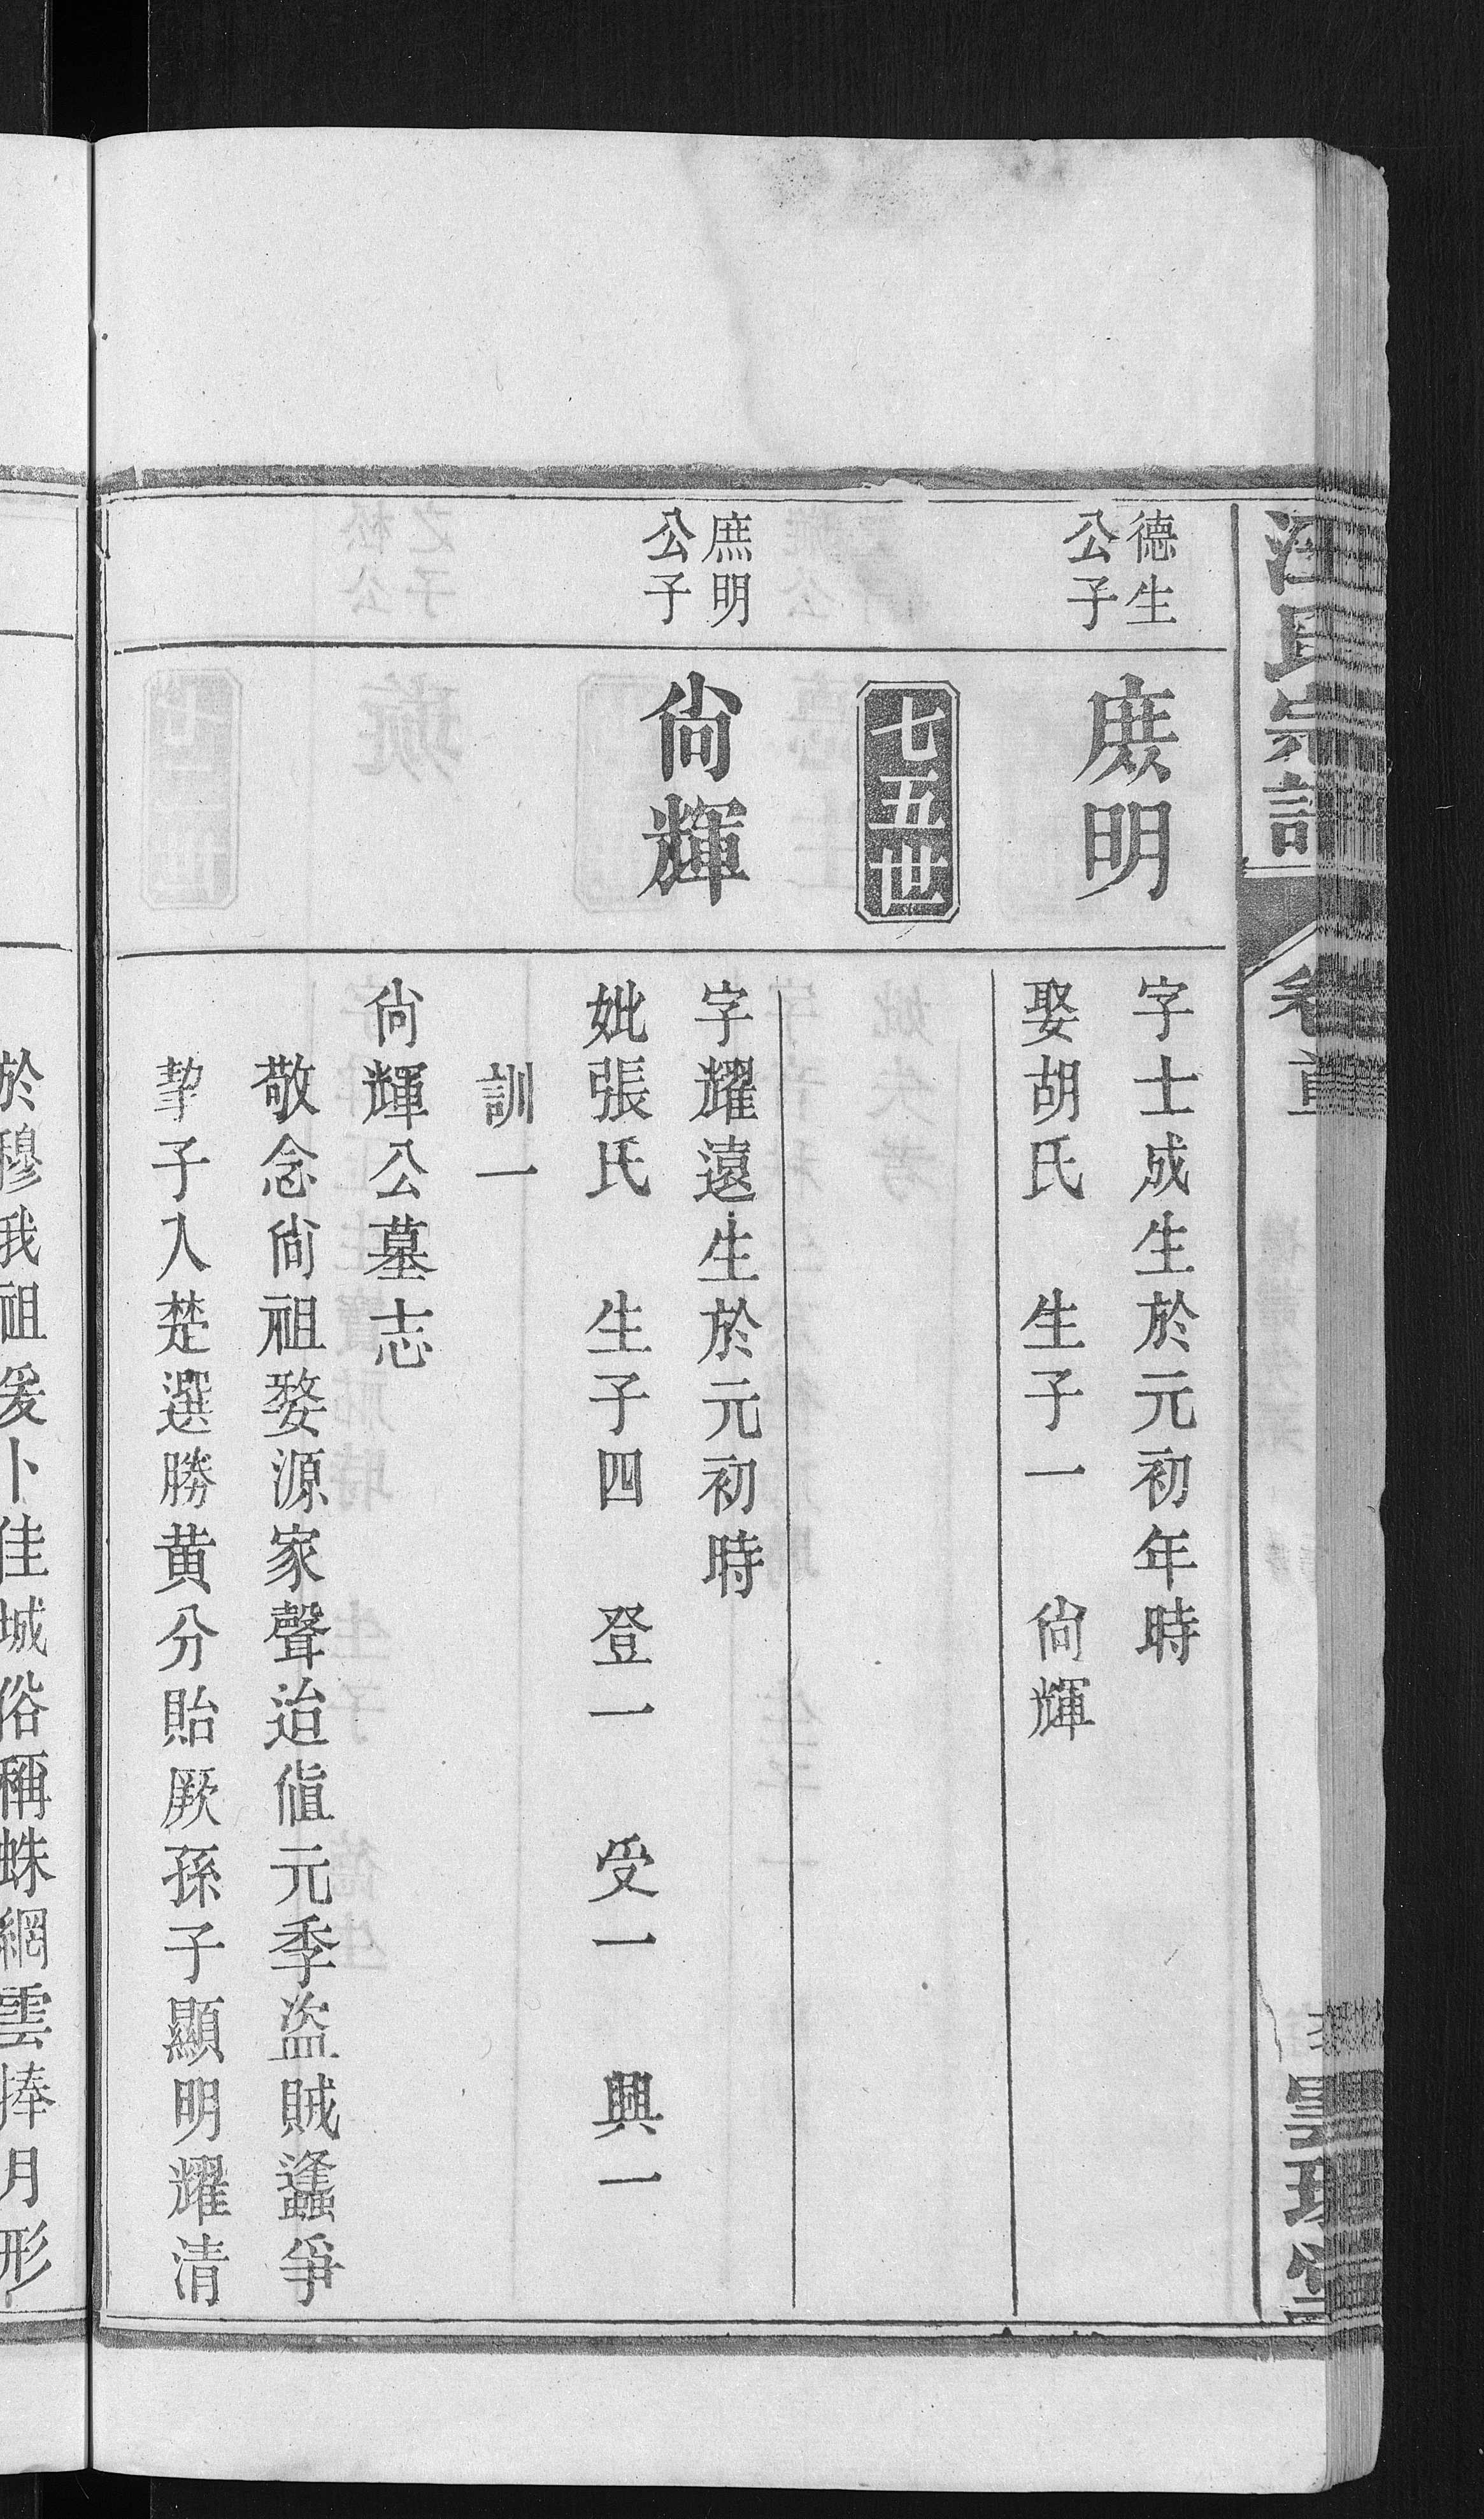 汪氏宗譜
卷首
德生
公子
庶明
字士成生於元初年時
娶胡氏 生子一 尙輝
七五世
庶明
公子
尙輝
字耀遠生於元初時
妣張氏 生子四 登一 受一 興一
訓一
尙輝公墓志
敬念尙祖婺源家聲迨值元季盜賊蠭爭
挈子入楚選勝黄分貽厥孫子顯明耀清
於穆我祖爰卜佳城俗稱蛛網雲捧月形